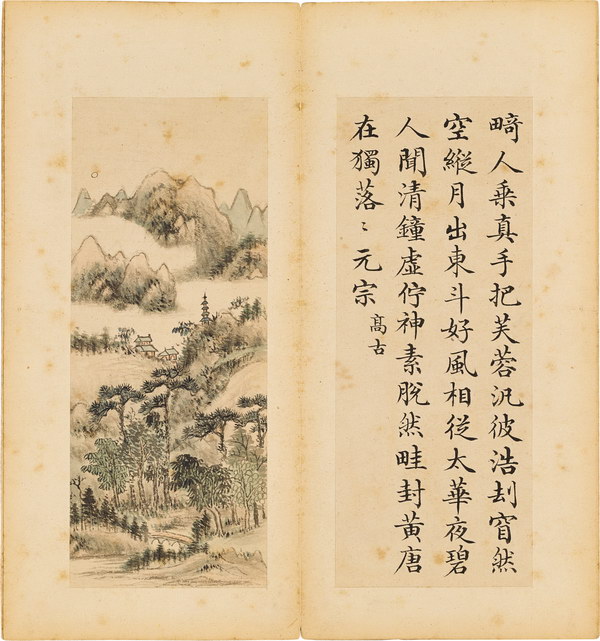 畸人乘真手把芙蓉汎彼浩刦窅然
空縱月出東斗好風相從太華夜碧
人聞清鐘虛佇神素脫然畦封黃唐
在獨落〻元宗
高古